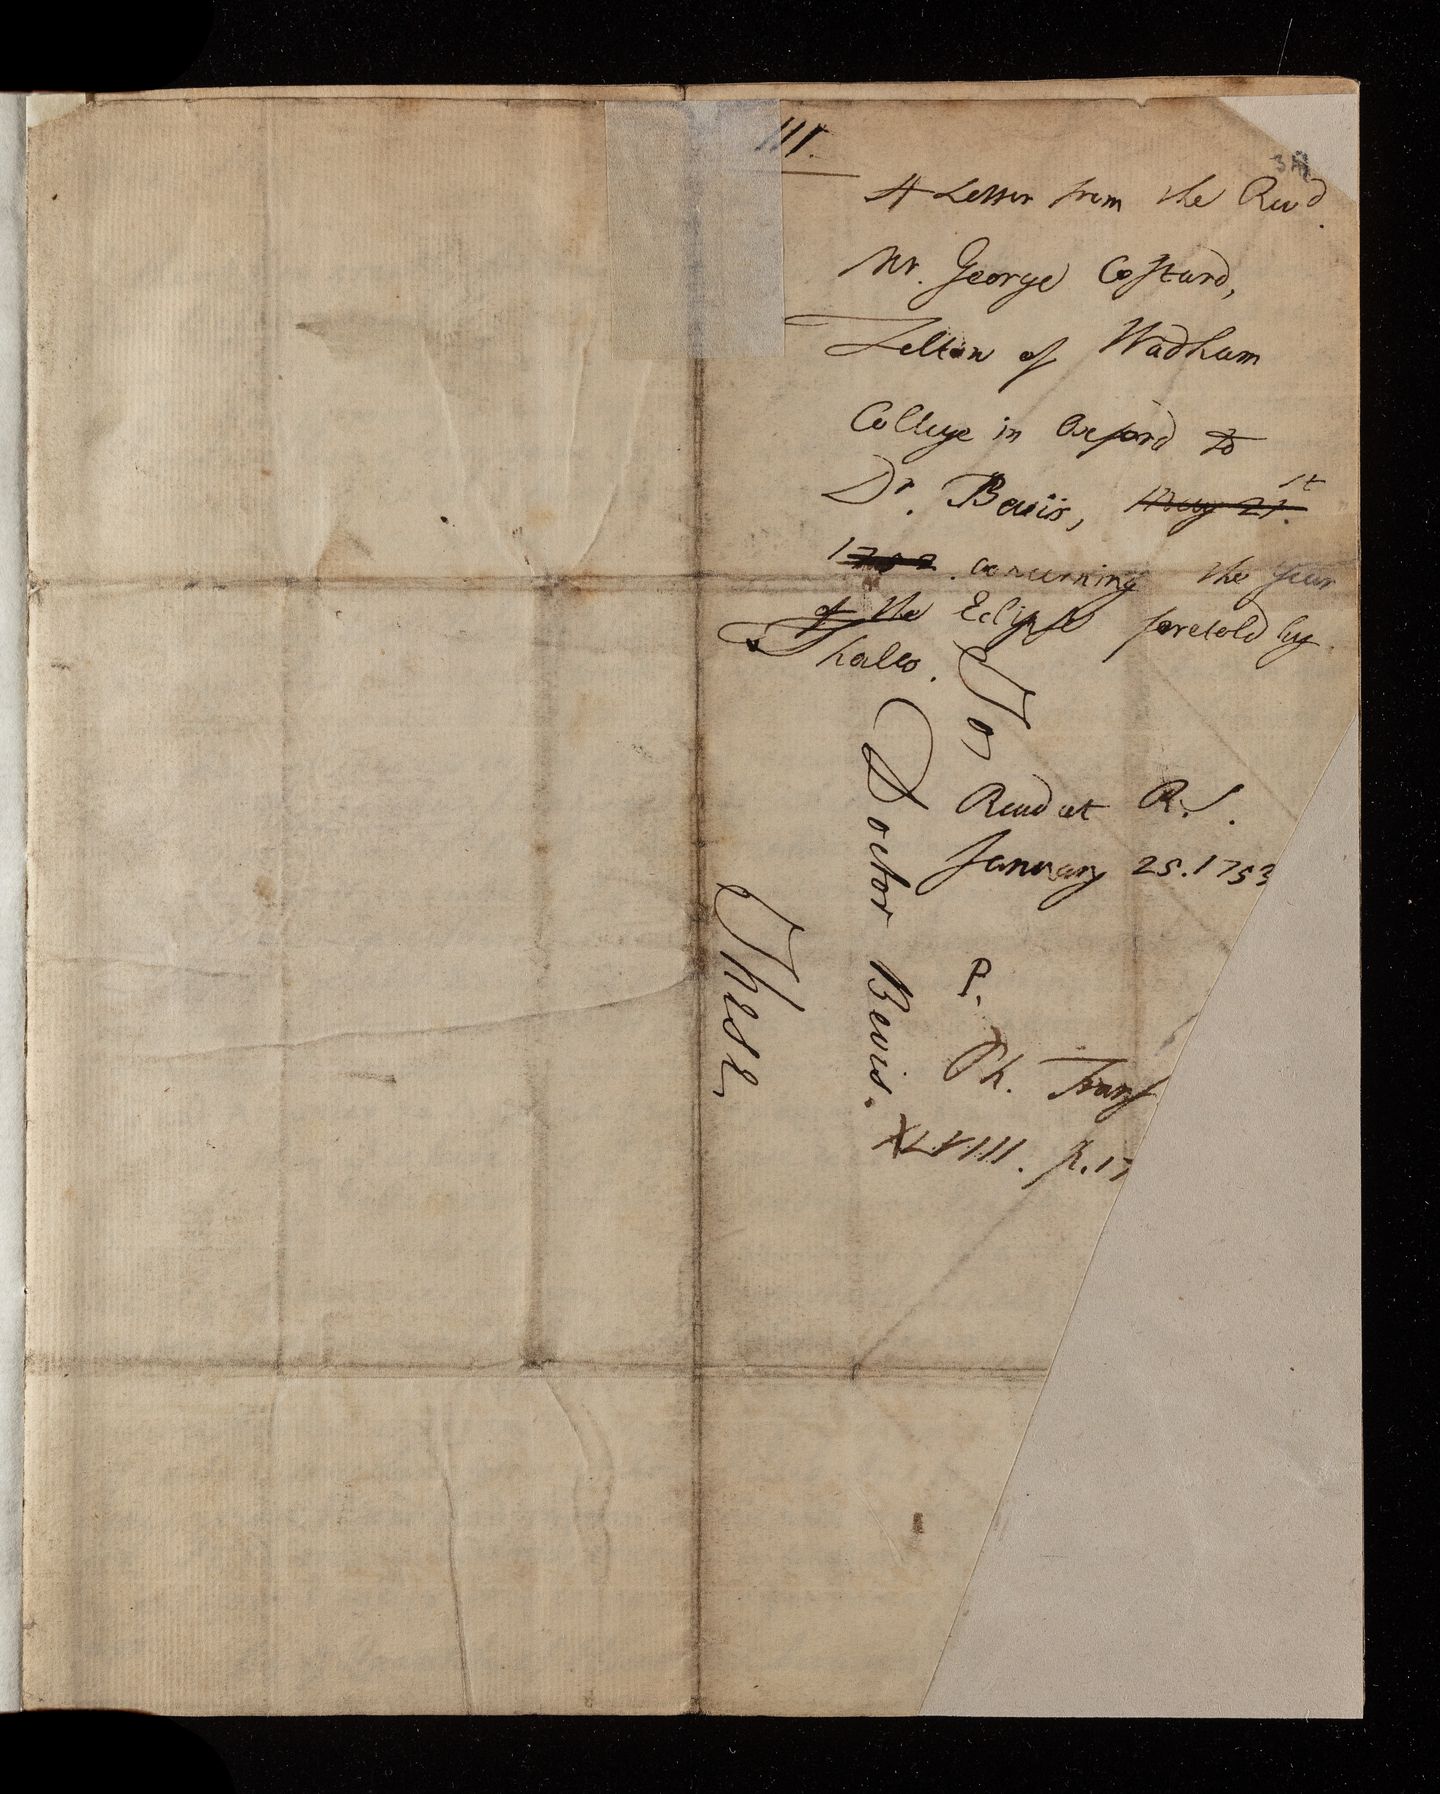 III.
A Letter from the Revd.
Mr. George Costard,
Fellow of Wadham
College in Oxford to
Dr. Bevis, May 21st.
1752. concerning the Year
of the Eclipse foretold by
Thales.
To
Doctor Bevis.
These
Read at R.S.
January 25. 1753
P.
Ph. Trans
XLVIII. p. 17